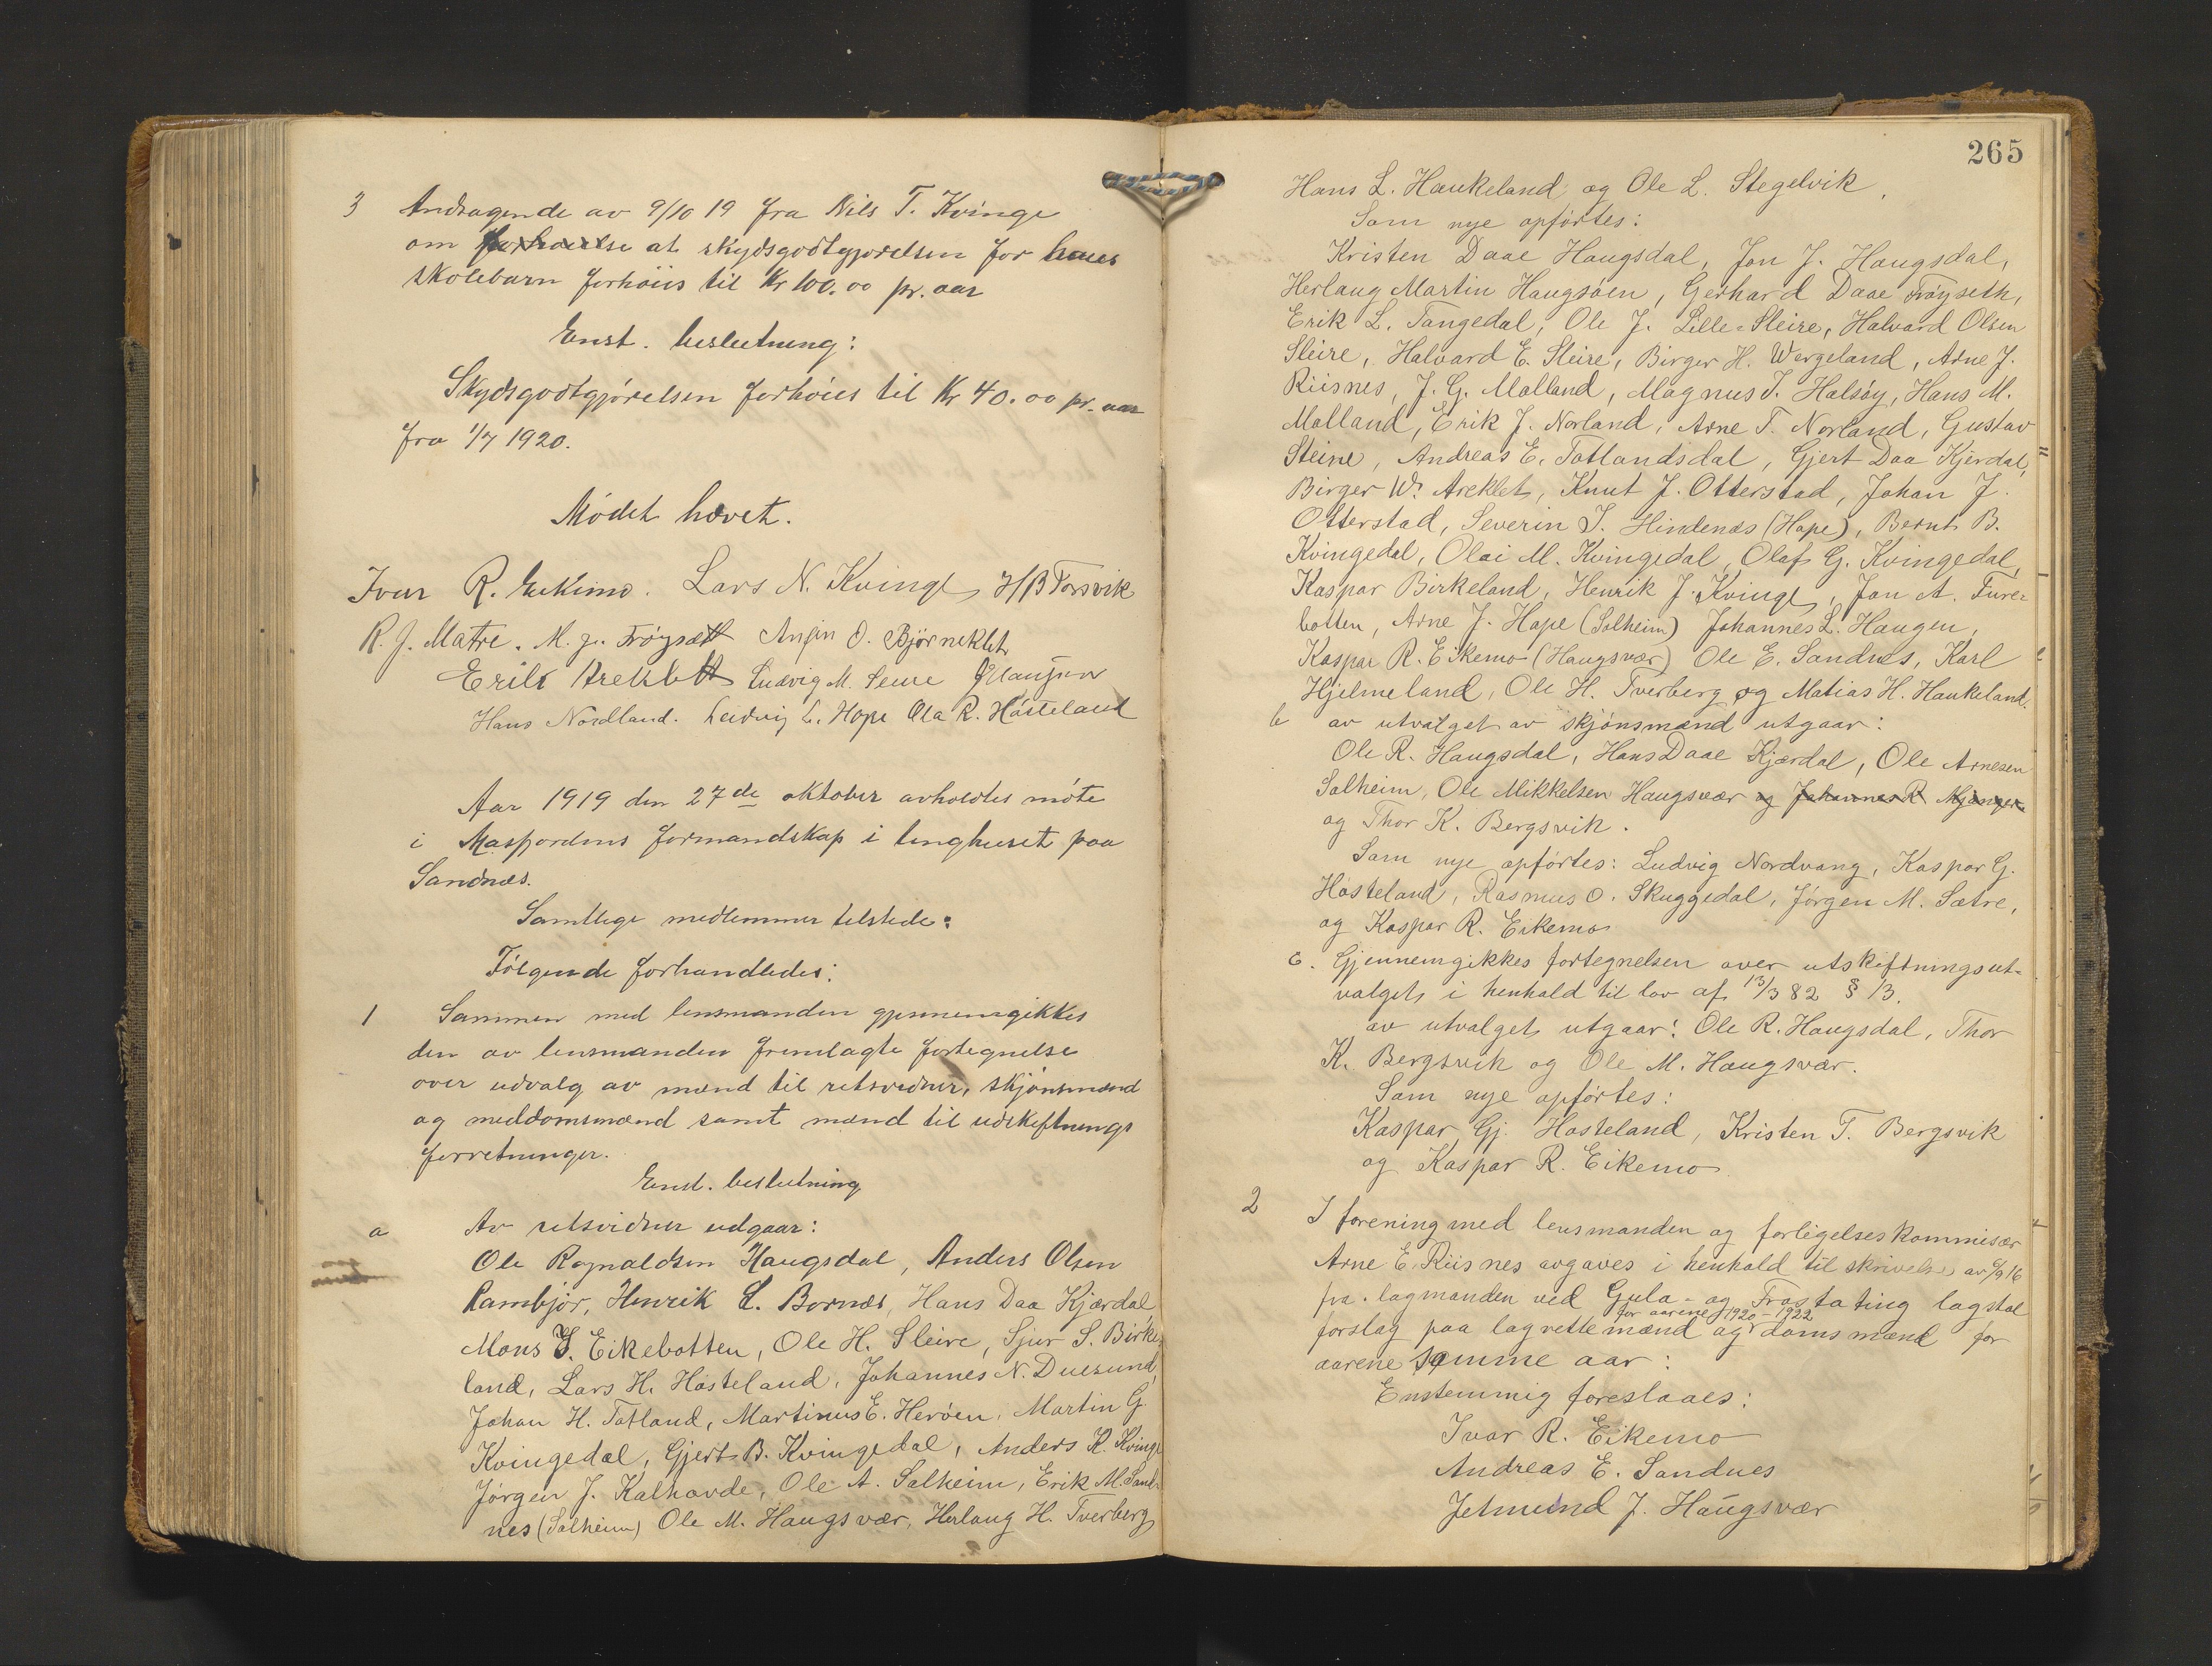 3 Andragende av 9/10 19 fra Nils T. Kvinge
om forhøielse at skydsgodtgjørelsen for hans
skolebarn forhøiis til Kr 100.00 pr. aar
Enst. beslutning:
Skydsgodtgjørelsen forhøies til Kr 40.00 pr. aar
fra 1/7 1920.
Mødet hævet.
Ivar R. Eikimo. Lars N. Kvinge H B Torsvik
R. J. Matre. M. J. Frøysett Ansjin O. Bjørneklet
Erik Areklett Ludvig M.
Hans Nordland. Ludvig L. Hope Ola R. Hosteland
Aar 1919 den 27de oktober avholdtes møte
i Masfjordens formandskap i tinghuset paa
Sandnæs.
Samtlige medlemmer tilstede.
Følgende forhandledes:
1 Sammen med lensmanden gjennemgikkes
den av lensmanden fremlagte fortegnelse
over udvalg av mænd til retsvidner, skjønsmænd
og meddomsmænd samt mænd til udskiftnings
forretninger.
Enst. beslutning
a Av retsvidner udgaar:
Ole Ragnaldsen Haugsdal, Anders Olsen
Rambjør, Henrik L. Bornæs, Hans Daa Kjærdal
Mons J. Eikebotten, Ole H. Sleire, Sjur S. Birke-
land, Lars H. Hosteland, Johannes N. Duesund,
Johan H. Totland, Martinus E. Herøen, Martin G.
Kvingedal, Gjert B. Kvingedal, Anders K. Kvinge
Jørgen J. Kalhovde, Ole A. Solheim, Erik M. Sand-
nes (Solheim) Ole M. Haugsvær, Herlaug H. Tverberg
265
Hans L. Haukeland og Ole L. Stegelvik.
Som nye opførtes:
Kristen Daae Haugsdal, Jon J. Haugsdal,
Herlaug Martin Haugsøen, Gerhard Daae Frøyseth,
Erik L. Tangedal, Ole J. Lille-Sleire, Halvard Olsen
Sleire, Halvard E. Sleire, Birger H. Wergeland, Arne J.
Riisnes, J. G. Molland, Magnus T. Halsøy, Hans M.
Molland, Erik J. Norland, Arne T. Norland, Gustav
Steine, Andreas E. Totlandsdal, Gjert Daa Kjerdal,
Birger W. Areklet, Knut J. Otterstad, Johan J.
Otterstad, Severin I. Hindenæs (Hope), Bernt B.
Kvingedal, Olai M. Kvingedal, Olaf G. Kvingedal,
Kaspar Birkeland, Henrik J. Kvinge, Jan A. Fure-
botten, Arne J. Hope (Solheim) Johannes L. Haugen,
Kaspar R. Eikemo (Haugsvær) Ole E. Sandnes, Karl
Hjelmeland, Ole H. Tverberg og Matias H. Haukeland.
b av utvalget av skjønsmænd utgaar:
Ole R. Haugsdal, Hans Daae Kjærdal, Ole Arnesen
Solheim, Ole Mikkelsen Haugsvær og Johannes R Mjanger
og Thor K. Bergsvik.
Som nye opførtes: Ludvig Nordvang, Kaspar G.
Hosteland, Rasmus O. Skuggedal, Jørgen M. Sætre,
og Kaspar R. Eikemo
c. Gjennemgikkes fortegnelsen over utskiftningsut-
valget i henhold til lov af 13/3 82 § 13.
av utvalget utgaar: Ole R. Haugsdal, Thor
K. Bergsvik og Ole M. Haugsvær.
Som nye opførtes:
Kaspar Gj. Hosteland, Kristen T. Bergsvik
og Kaspar R. Eikemo
2 I forening med lensmanden og forligelseskommisær
Arne E. Riisnes avgaves i henhold til skrivelse av 6/9 16
fra lagmanden ved Gula- og Frostating lagstol
for aarene 1920-1922
forslag paa lagrettemænd og domsmænd for
aarene samme aar:
Enstemmig foreslaaes:
Ivar R. Eikemo
Andreas E. Sandnes
Jetmund J. Haugsvær